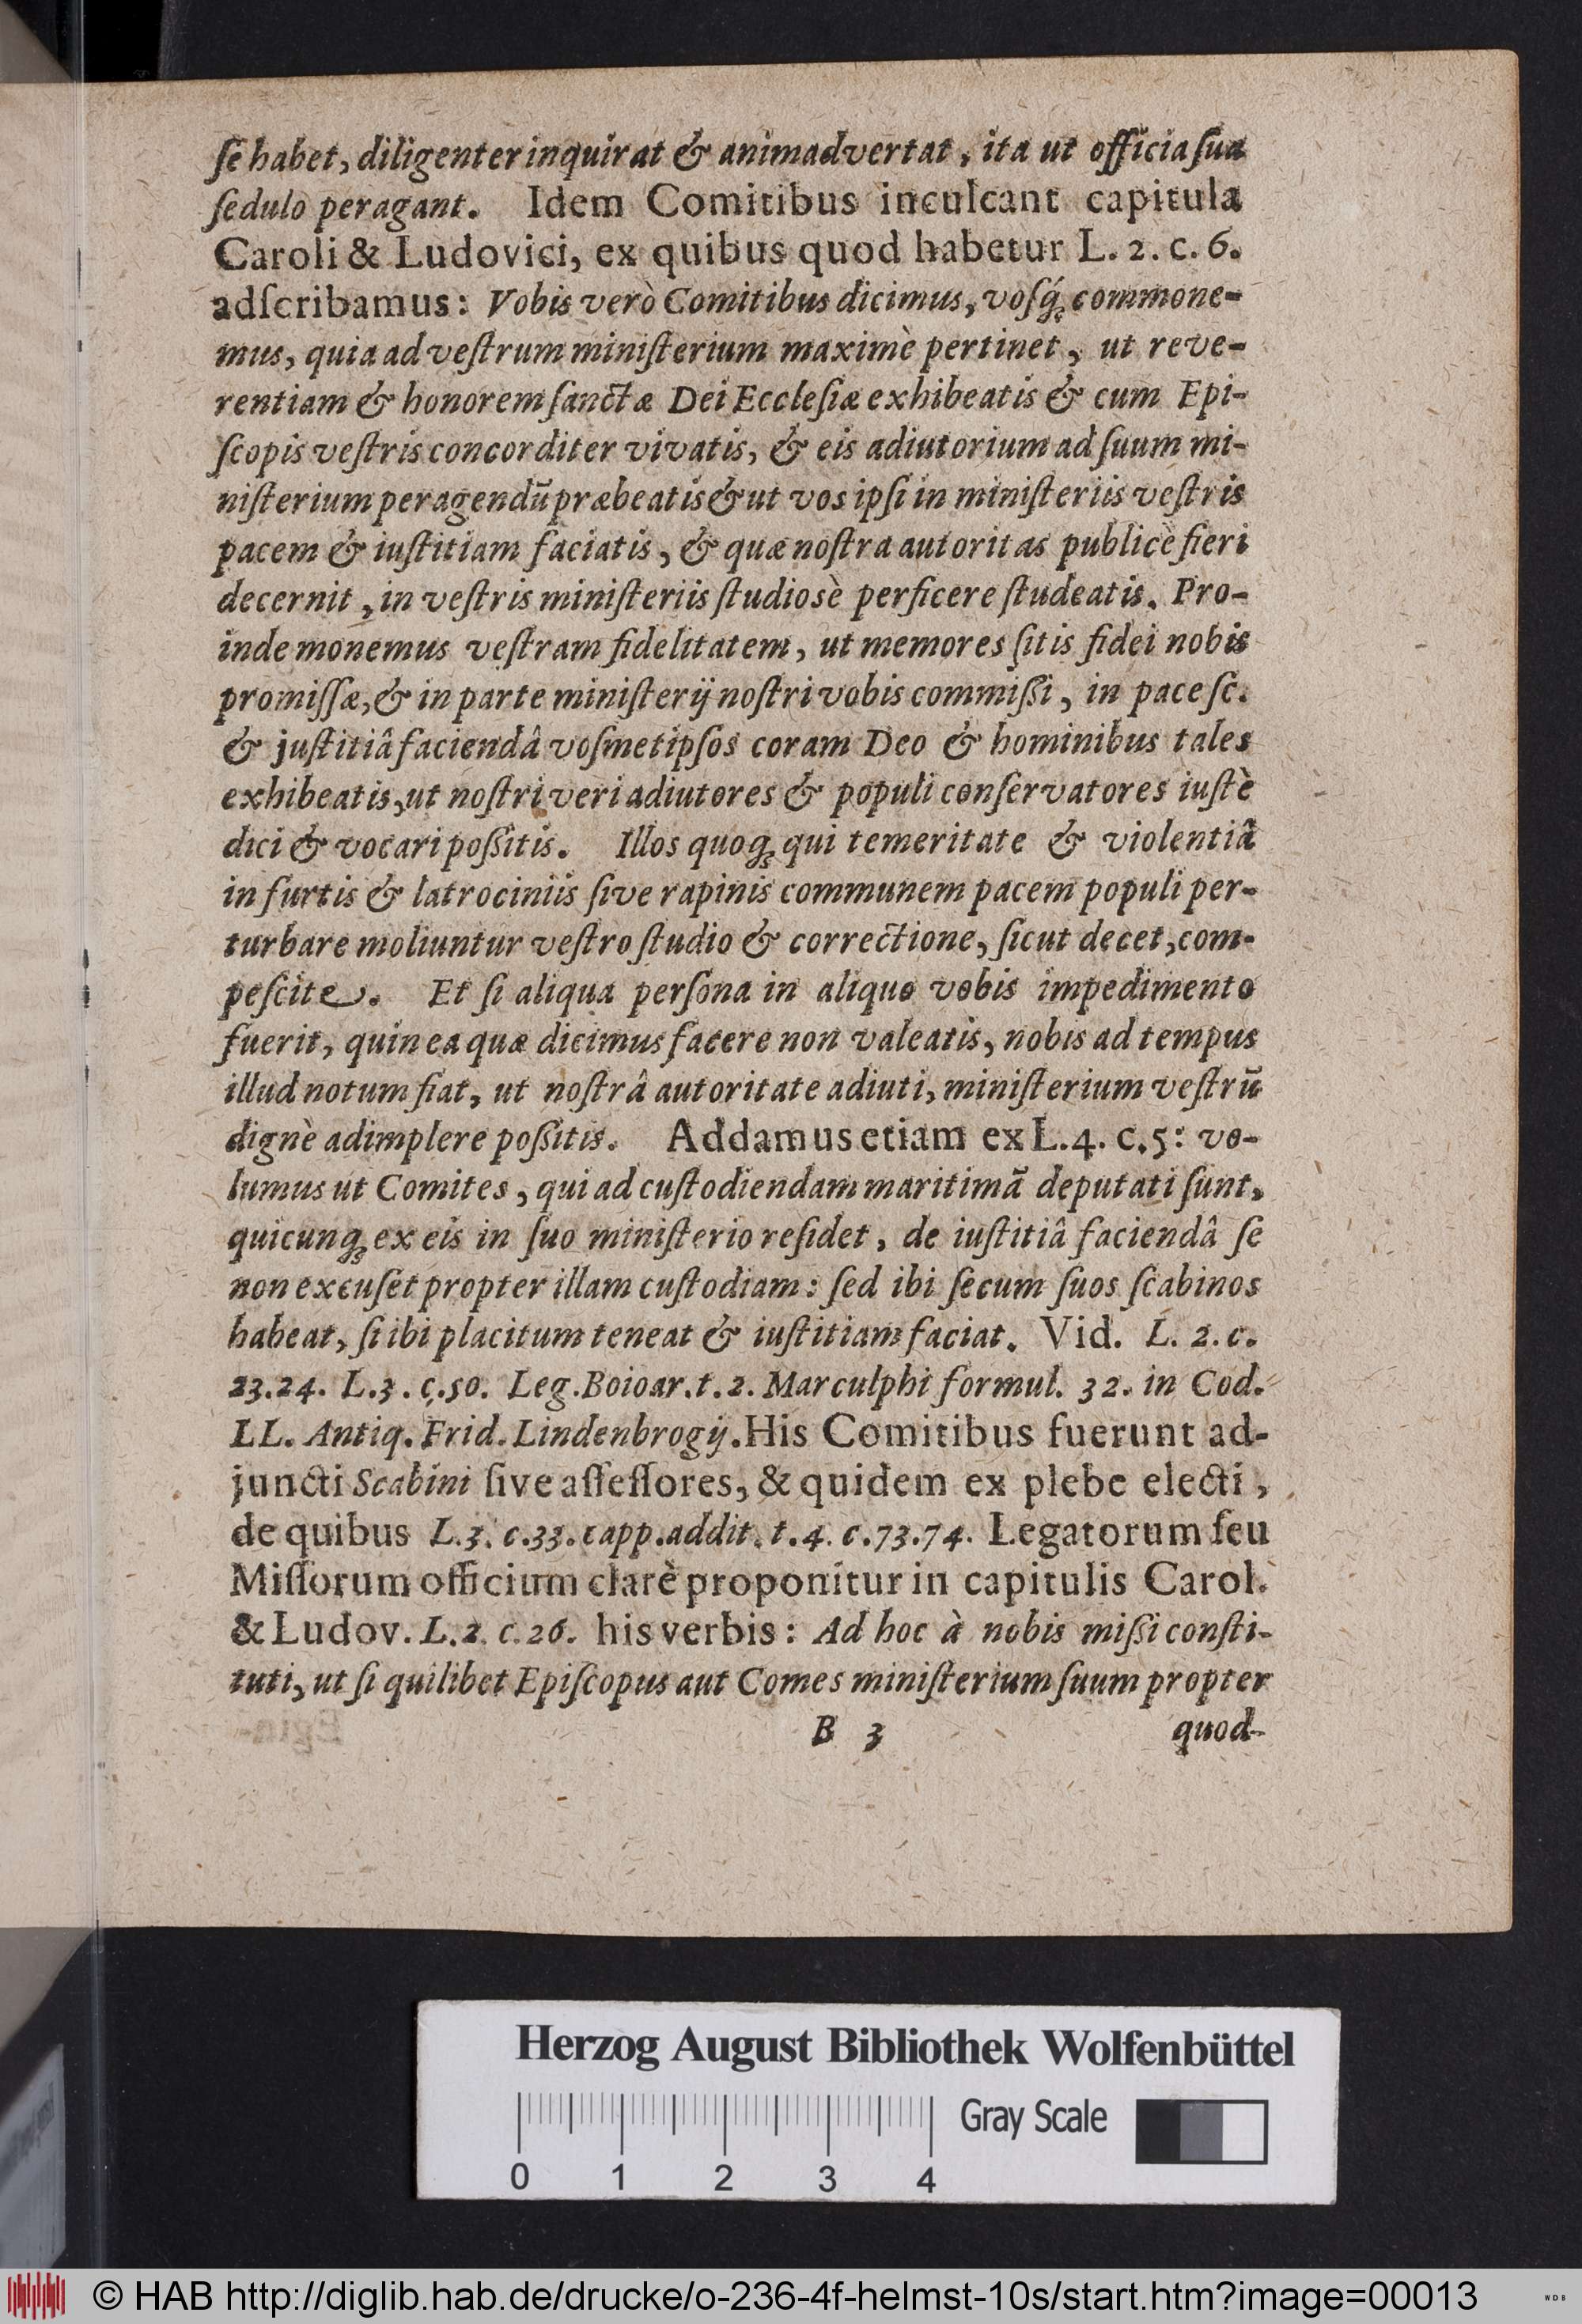 ſe habet, diligenter inquirat & animadvertat, ita ut officia ſua
ſedulo peragant. Idem Comitibus inculcant capitula
Caroli & Ludovici, ex quibus quod habetur L. 2. c. 6.
adſcribamus: Vobis verò Comitibus dicimus, voſq́; commone-
mus, quia ad veſtrum miniſterium maximè pertinet, ut reve-
rentiam & honorem ſanctæ Dei Eccleſiæ exhibeatis & cum Epi-
ſcopis veſtris concorditer vivatis, & eis adiutorium ad ſuum mi-
niſterium peragendū præbeatis & ut vos ipſi in miniſteriis veſtris
pacem & iuſtitiam faciatis, & quæ noſtra autoritas publicè fieri
decernit, in veſtris miniſteriis ſtudiosè perficere ſtudeatis. Pro-
inde monemus veſtram fidelitatem, ut memores ſitis fidei nobis
promiſſæ, & in parte miniſterij noſtri vobis commiſſi, in pace ſc.
& juſtitiâ faciendâ voſmetipſos coram Deo & hominibus tales
exhibeatis, ut noſtri veri adiutores & populi conſervatores iuſtè
dici & vocari poſſitis. Illos quoq; qui temeritate & violentiâ
in furtis & latrociniis ſive rapinis communem pacem populi per-
turbare moliuntur veſtro ſtudio & correctione, ſicut decet, com-
peſcite. Et ſi aliqua perſona in aliquo vobis impedimento
fuerit, quin ea quæ dicimus facere non valeatis, nobis ad tempus
illud notum fiat, ut noſtrâ autoritate adiuti, miniſterium veſtrū
dignè adimplere poſſitis. Addamus etiam ex L. 4. c. 5: vo-
lumus ut Comites, qui ad cuſtodiendam maritimā deputati ſunt,
quicunq; ex eis in ſuo miniſterio reſidet, de iuſtitiâ faciendâ ſe
non excuſet propter illam cuſtodiam: ſed ibi ſecum ſuos ſcabinos
habeat, ſi ibi placitum teneat & iuſtitiam faciat. Vid. L. 2. c.
23. 24. L. 3. c. 50. Leg. Boioar. t. 2. Marculphi formul. 32. in Cod.
LL. Antiq. Frid. Lindenbrogij. His Comitibus fuerunt ad-
juncti Scabini ſive aſſeſſores, & quidem ex plebe electi,
de quibus L. 3. c. 33. capp. addit. t. 4. c. 73. 74. Legatorum ſeu
Miſſorum officium clarè proponitur in capitulis Carol.
& Ludov. L. 2. c. 26. his verbis: Ad hoc à nobis miſſi conſti-
tuti, ut ſi quilibet Epiſcopus aut Comes miniſterium ſuum propter
B 3 quod-
Herzog August Bibliothek Wolfenbüttel
Gray Scale
0 1 2 3 4
© HAB http://diglib.hab.de/drucke/o-236-4f-helmst-10s/start.htm?image=00013
WDB